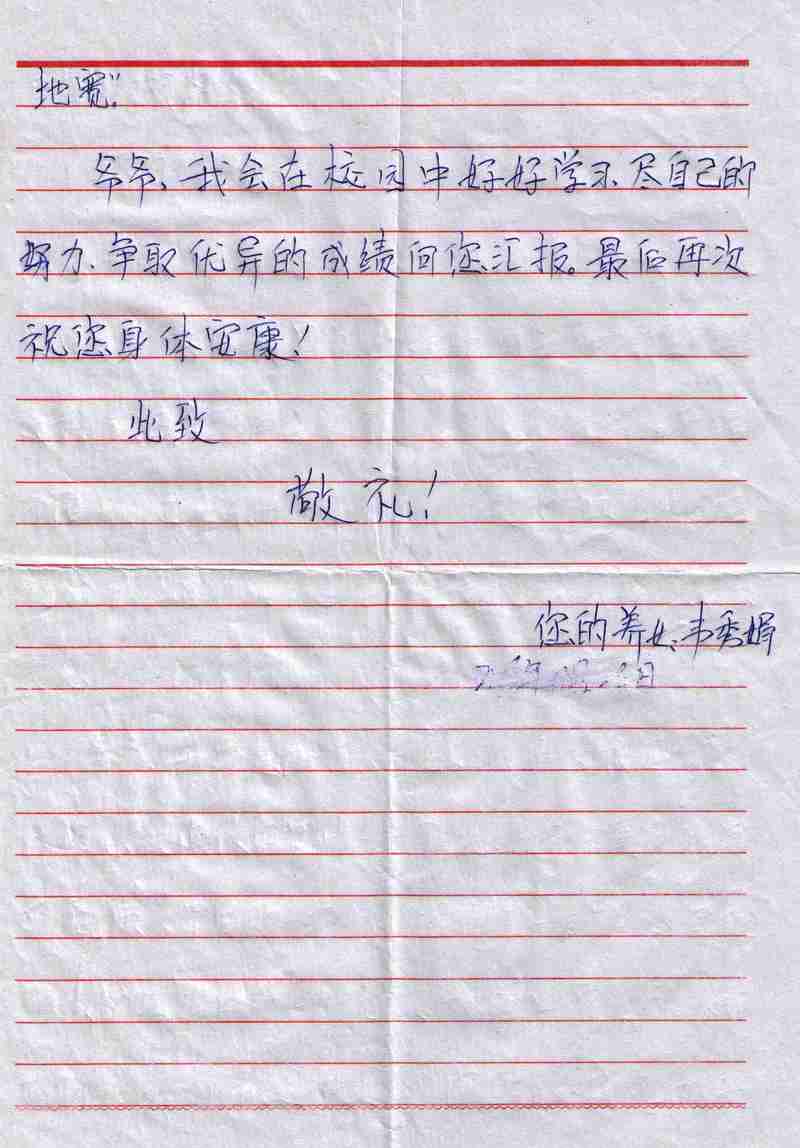 地宽”。
爷爷、我会在校园中好好学习、尽自己的
努力、争取优异的成绩向您汇报。最后再次
祝您身体安康！
此致
敬礼！
您的养女、韦秀娟
日